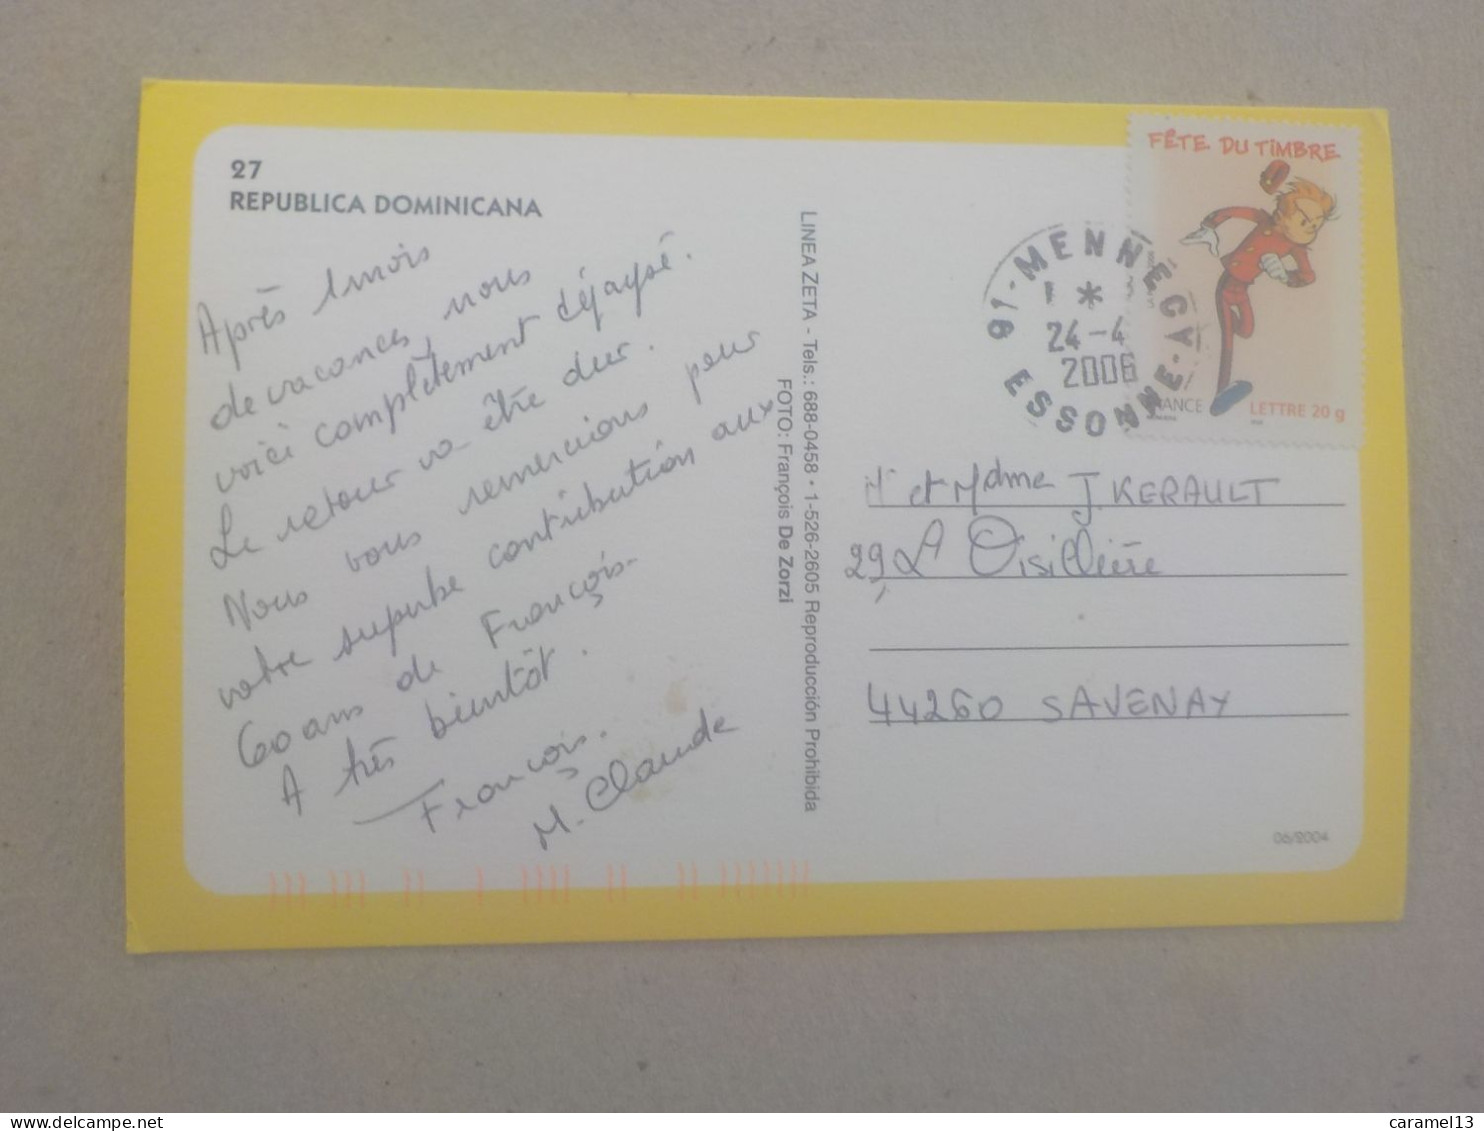 27
REPUBLICA DOMINICANA
Après 1 mois
de vacances, nous
voici complètement déjaysé.
Le retour va être dur.
Nous vous remercions pour
votre superbe contribution aux
60 ans de François.
A très bientôt.
François.
M. Claude
LINEA ZETA - Tels.: 688-0458 • 1-526-2605 Reproducción Prohibida
FOTO: François De Zorzi
FÊTE DU TIMBRE
FRANCE
LETTRE 20 g
91-MENNECY.
*
24-4
2006
ESSONNE
Mr et Mdme J. KERAULT
29 L'Oisillière
44260 SAVENAY
06/2004
caramel13